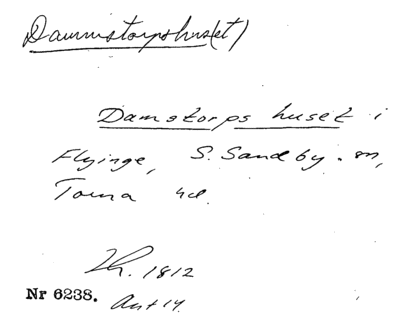 Dammstorpshus(et)
Damstorps huset i
Flyinge, S. Sandby sn,
Torna hd.
Lh. 1812
Nr 6238. Ant 14.